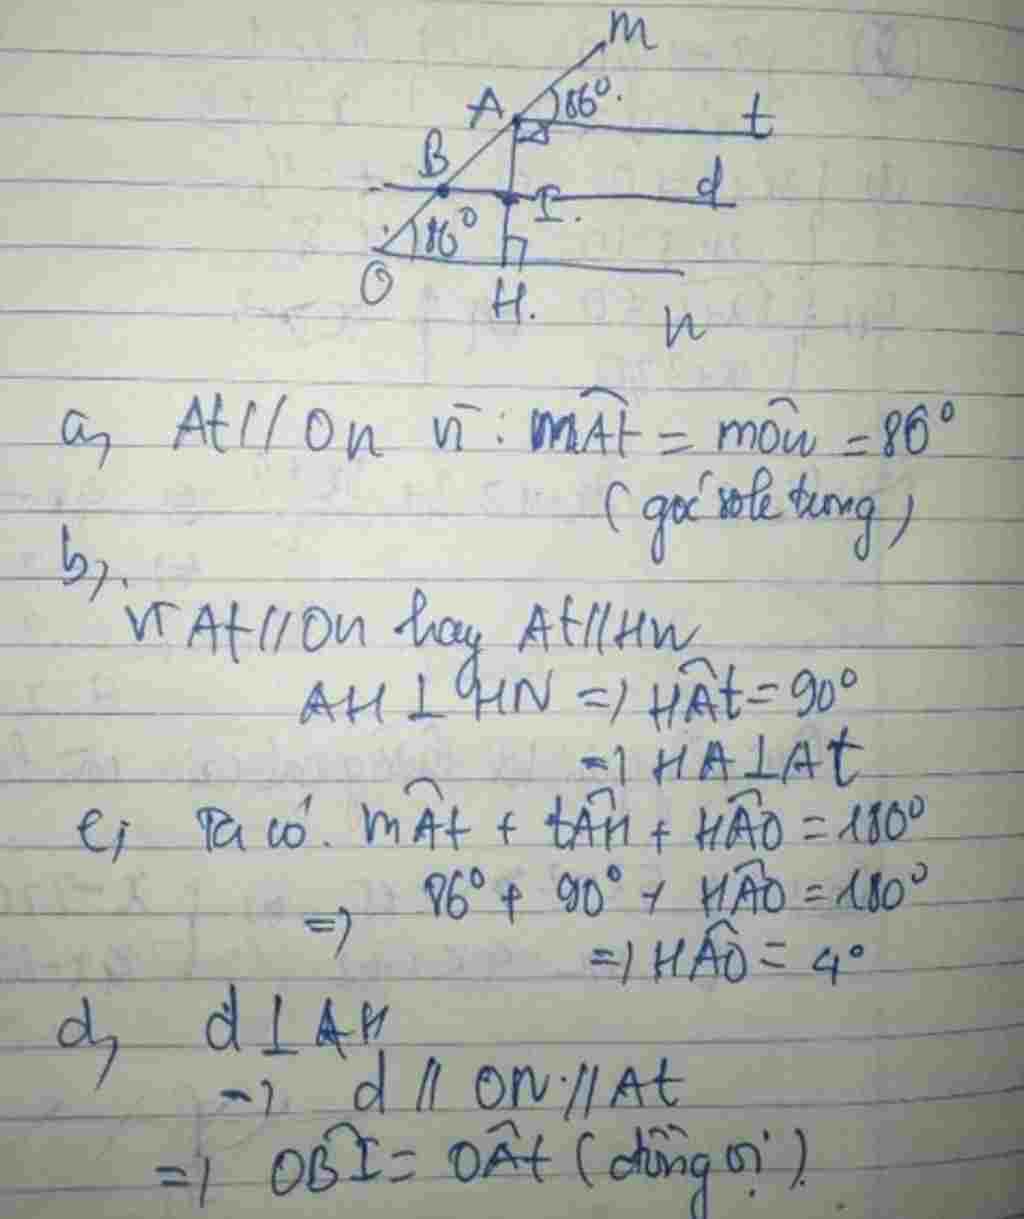 m
A 86°.
t
B
d
I.
86°
O
H.
n
a, At // On vì: mÂt = mÔn = 86°
(góc sole trong)
b,.
Vì At // On hay At // Hn
AH ⊥ HN => HÂt = 90°
=> HA ⊥ At
c; Ta có. mÂt + tÂH + HÂO = 180°
=> 86° + 90° + HÂO = 180°
=> HÂO = 4°
d, d ⊥ AH
=> d // ON // At
=> OB̂I = OÂt (đồng vị).